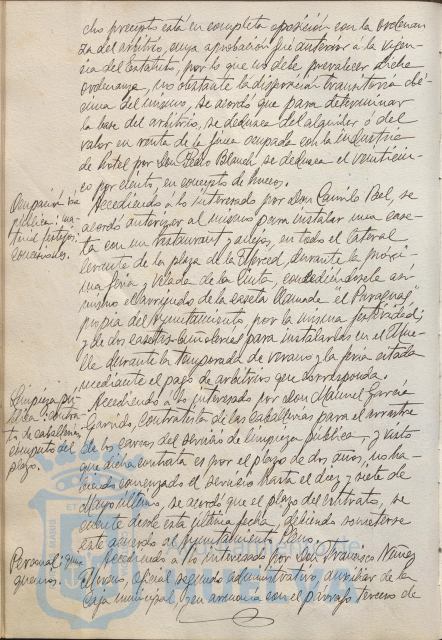 cho precepto está en completa oposición con la ordenan-
za del arbitrio, cuya aprobación fué anterior á la vigen-
cia del Estatuto, por lo que no debe prevalecer dicha
ordenanza, no obstante la disposición transitoria dé-
cima del mismo, se acordó que para determinar
la base del arbitrio, se deduzca del alquiler ó del
valor en renta de la finca ocupada con la industria
de hotel por Don Pedro Blanch se deduzca el veinticin-
co por ciento, en concepto de huecos.
Ocupación vía
pública; ma-
terial festejos
concesiones.
Accediendo á lo interesado por Don Camilo Bel, se
acordó autorizar al mismo para instalar una case-
ta con un restaurant y anejos, en todo el lateral
levante de la plaza de la Merced, durante la próxi-
ma feria y Velada de la Cinta, concediéndosele así
mismo el arriendo de la caseta llamada "el Paraguas"
propia del Ayuntamiento, por la misma festividad;
y de dos casetas para instalarlas en el Mue-
lle durante la temporada de verano y la feria citada
mediante el pago de arbitrios que corresponda.
Limpieza pú-
blica: contra-
to de caballerías
computo del
plazo.
Accediendo á lo interesado por Don Manuel García
Garrido, contratista de las caballerías para el arrastre
de los carros del servicio de limpieza pública y visto
que dicha contrata es por el plazo de dos años, no ha-
biendo comenzado el servicio hasta el diez y siete de
Mayo último, se acordó que el plazo del contrato, se
cuente desde esta última fecha, debiendo someterse
este acuerdo al Ayuntamiento Pleno.
Personal: quin-
quenios.
Accediendo á lo interesado por Don Francisco Nuñez
Moreno, oficial segundo administrativo, auxiliar de la
Caja municipal y en armonía con el párrafo tercero de